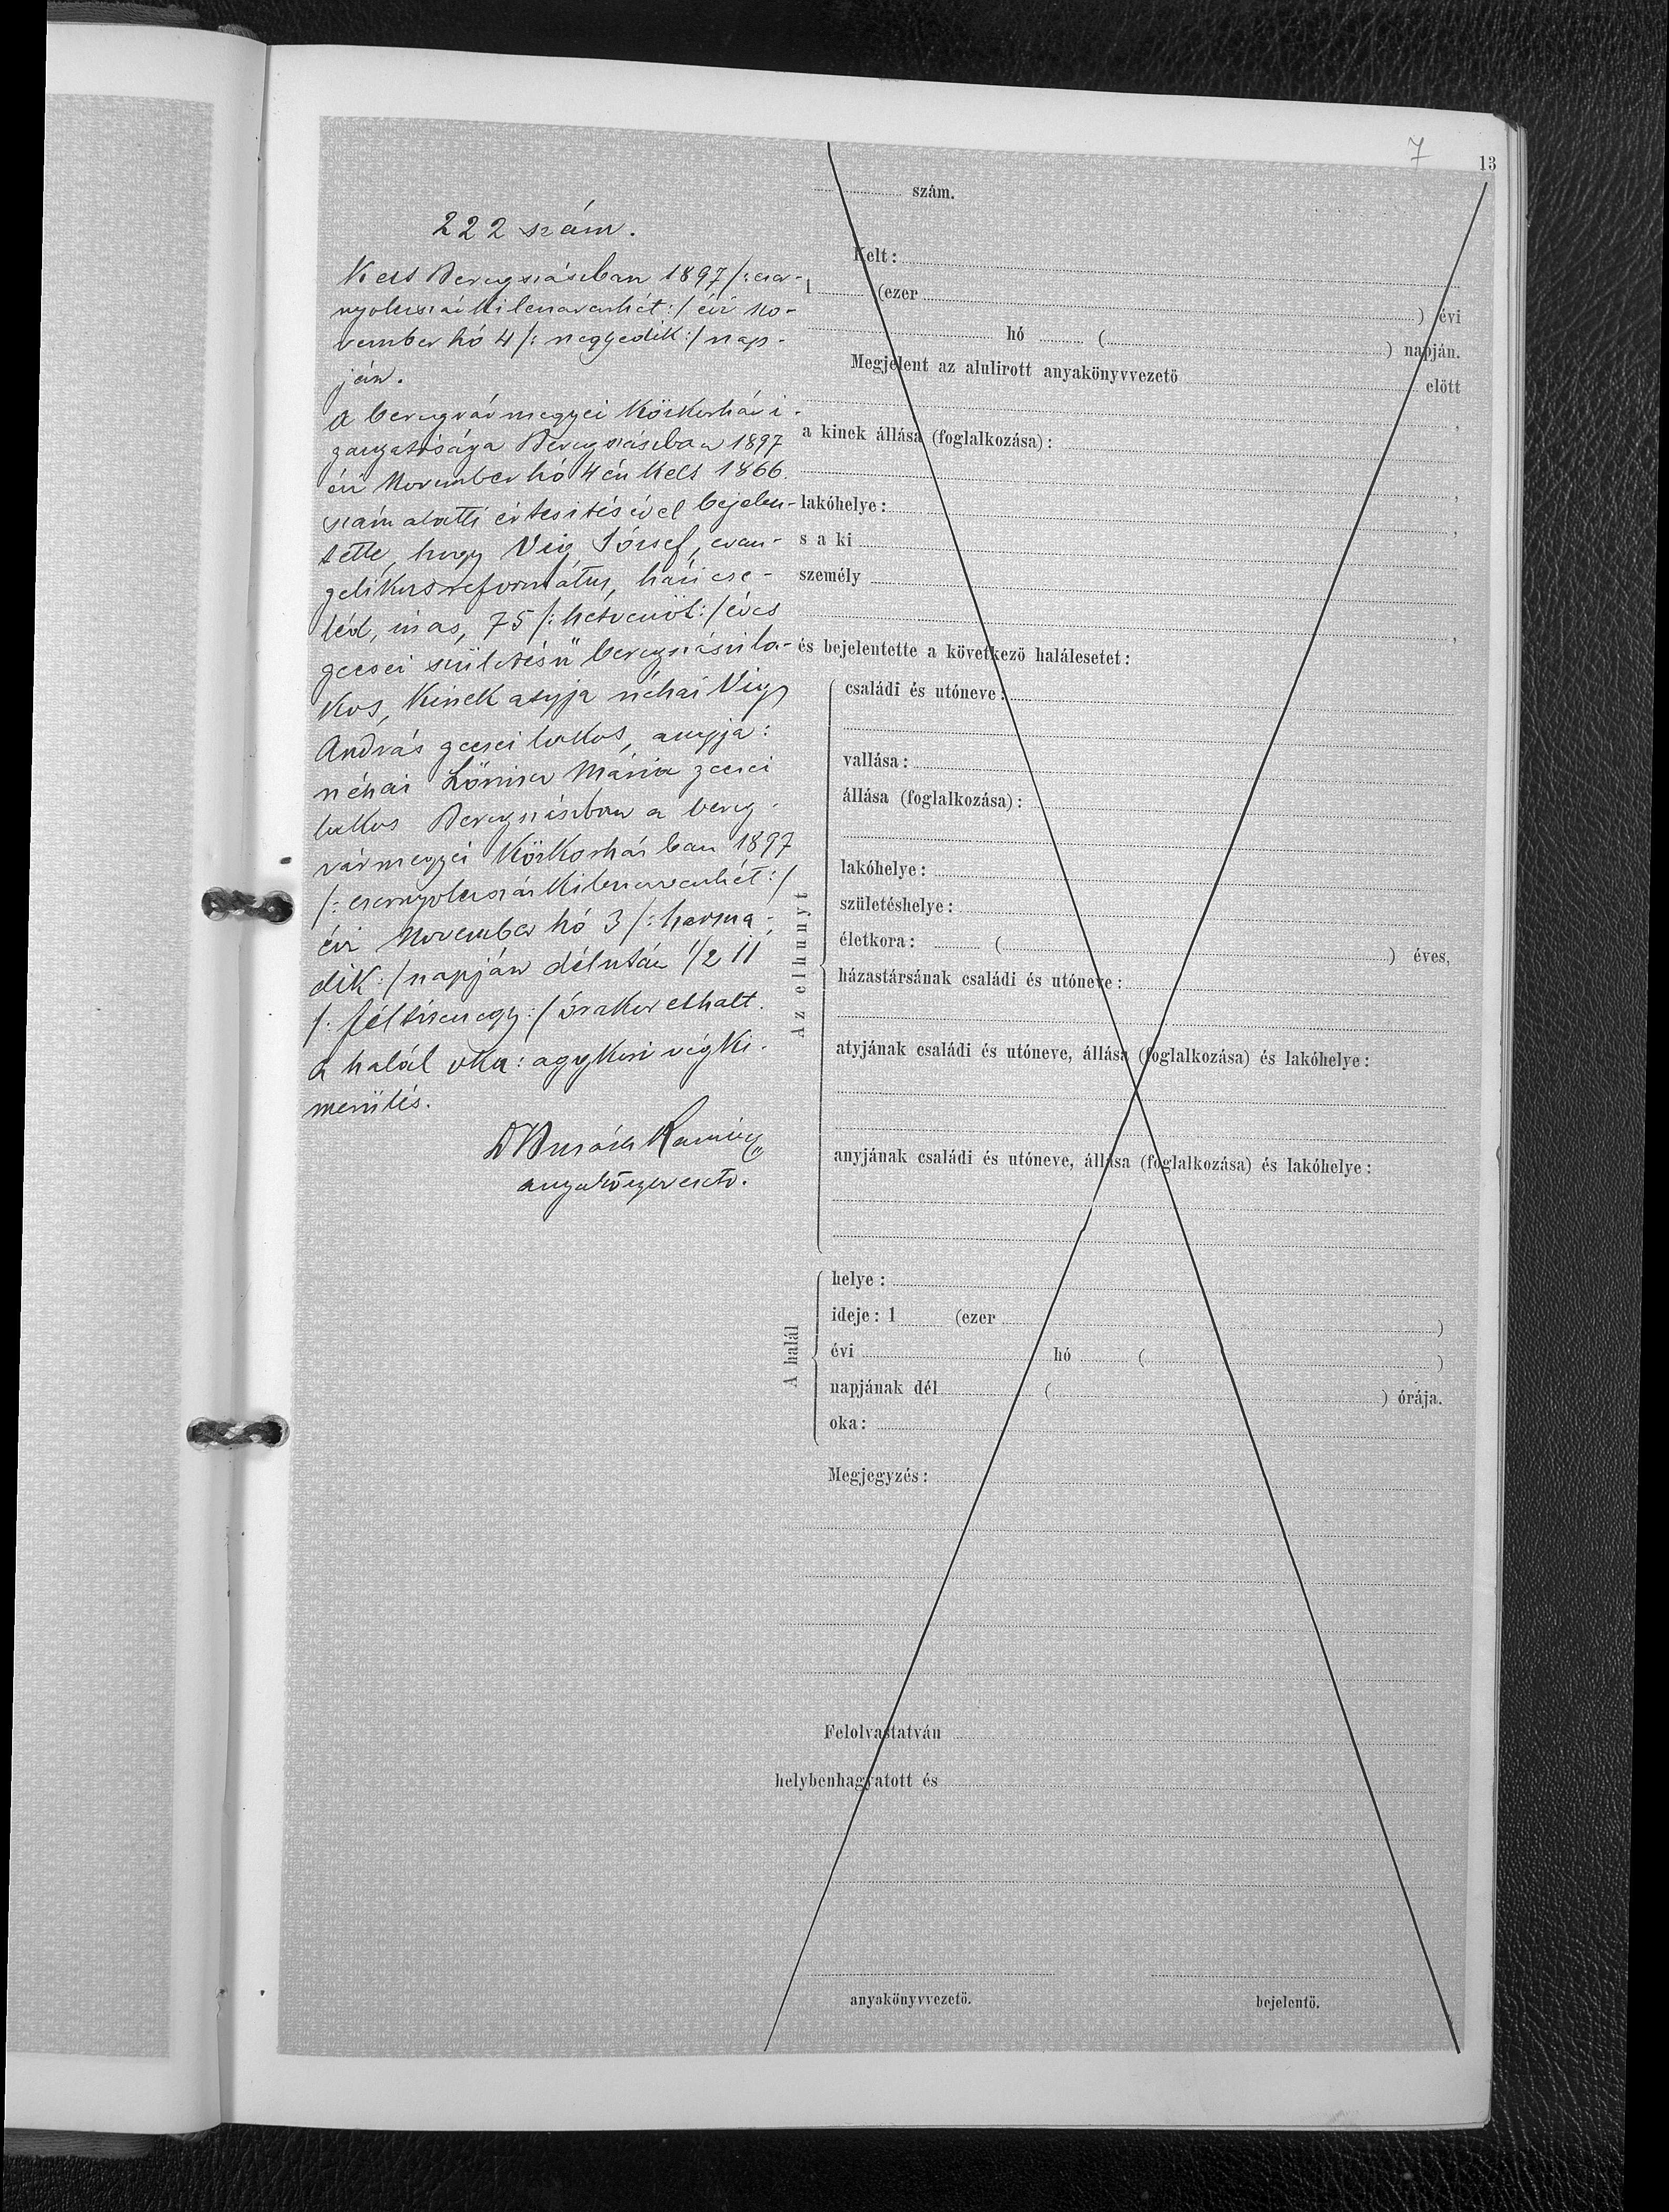 7
13
szám.
222 szám.
Kelt Beregszászban 1897 /: ezer-
nyolczszázkilenczvenhét :/ évi no-
vember hó 4 /: negyedik :/ nap-
ján.
A beregvármegyei közkorház i-
gazgatósága Beregszászban 1897
évi November hó 4 én kelt 1866.
szám alatti értesitésével bejelen-
tette, hogy Vig József, evan-
gelikus református, házi cse-
léd, 75 /: hetvenöt :/ éves
gecsei születésü beregszászi la-
kos, kinek atyja néhai Vig
András gecsei lakos, anyja:
néhai Mária gecsei
lakos Beregszászban a bereg-
vármegyei közkorházban 1897
/: ezernyolczszázkilenczvenhét :/
évi November hó 3 /: harma-
dik :/ napján délután 1/2 11
/: féltizenegy :/ órakor elhalt.
A halál oka: aggkori végki-
merülés.
anyakönyvvezető.
Kelt:
1 (ezer ) évi
hó ( ) napján.
Megjelent az alulirott anyakönyvvezető előtt
,
a kinek állása (foglalkozása):
,
lakóhelye: ,
s a ki
személy
,
és bejelentette a következő halálesetet:
Az elhunyt
családi és utóneve:
vallása:
állása (foglalkozása):
lakóhelye:
születéshelye:
életkora: ( ) éves,
házastársának családi és utóneve:
atyjának családi és utóneve, állása (foglalkozása) és lakóhelye:
anyjának családi és utóneve, állása (foglalkozása) és lakóhelye:
A halál
helye:
ideje: 1 (ezer )
évi hó ( )
napjának dél ( ) órája.
oka:
Megjegyzés:
Felolvastatván
helybenhagyatott és
anyakönyvvezető.
bejelentő.